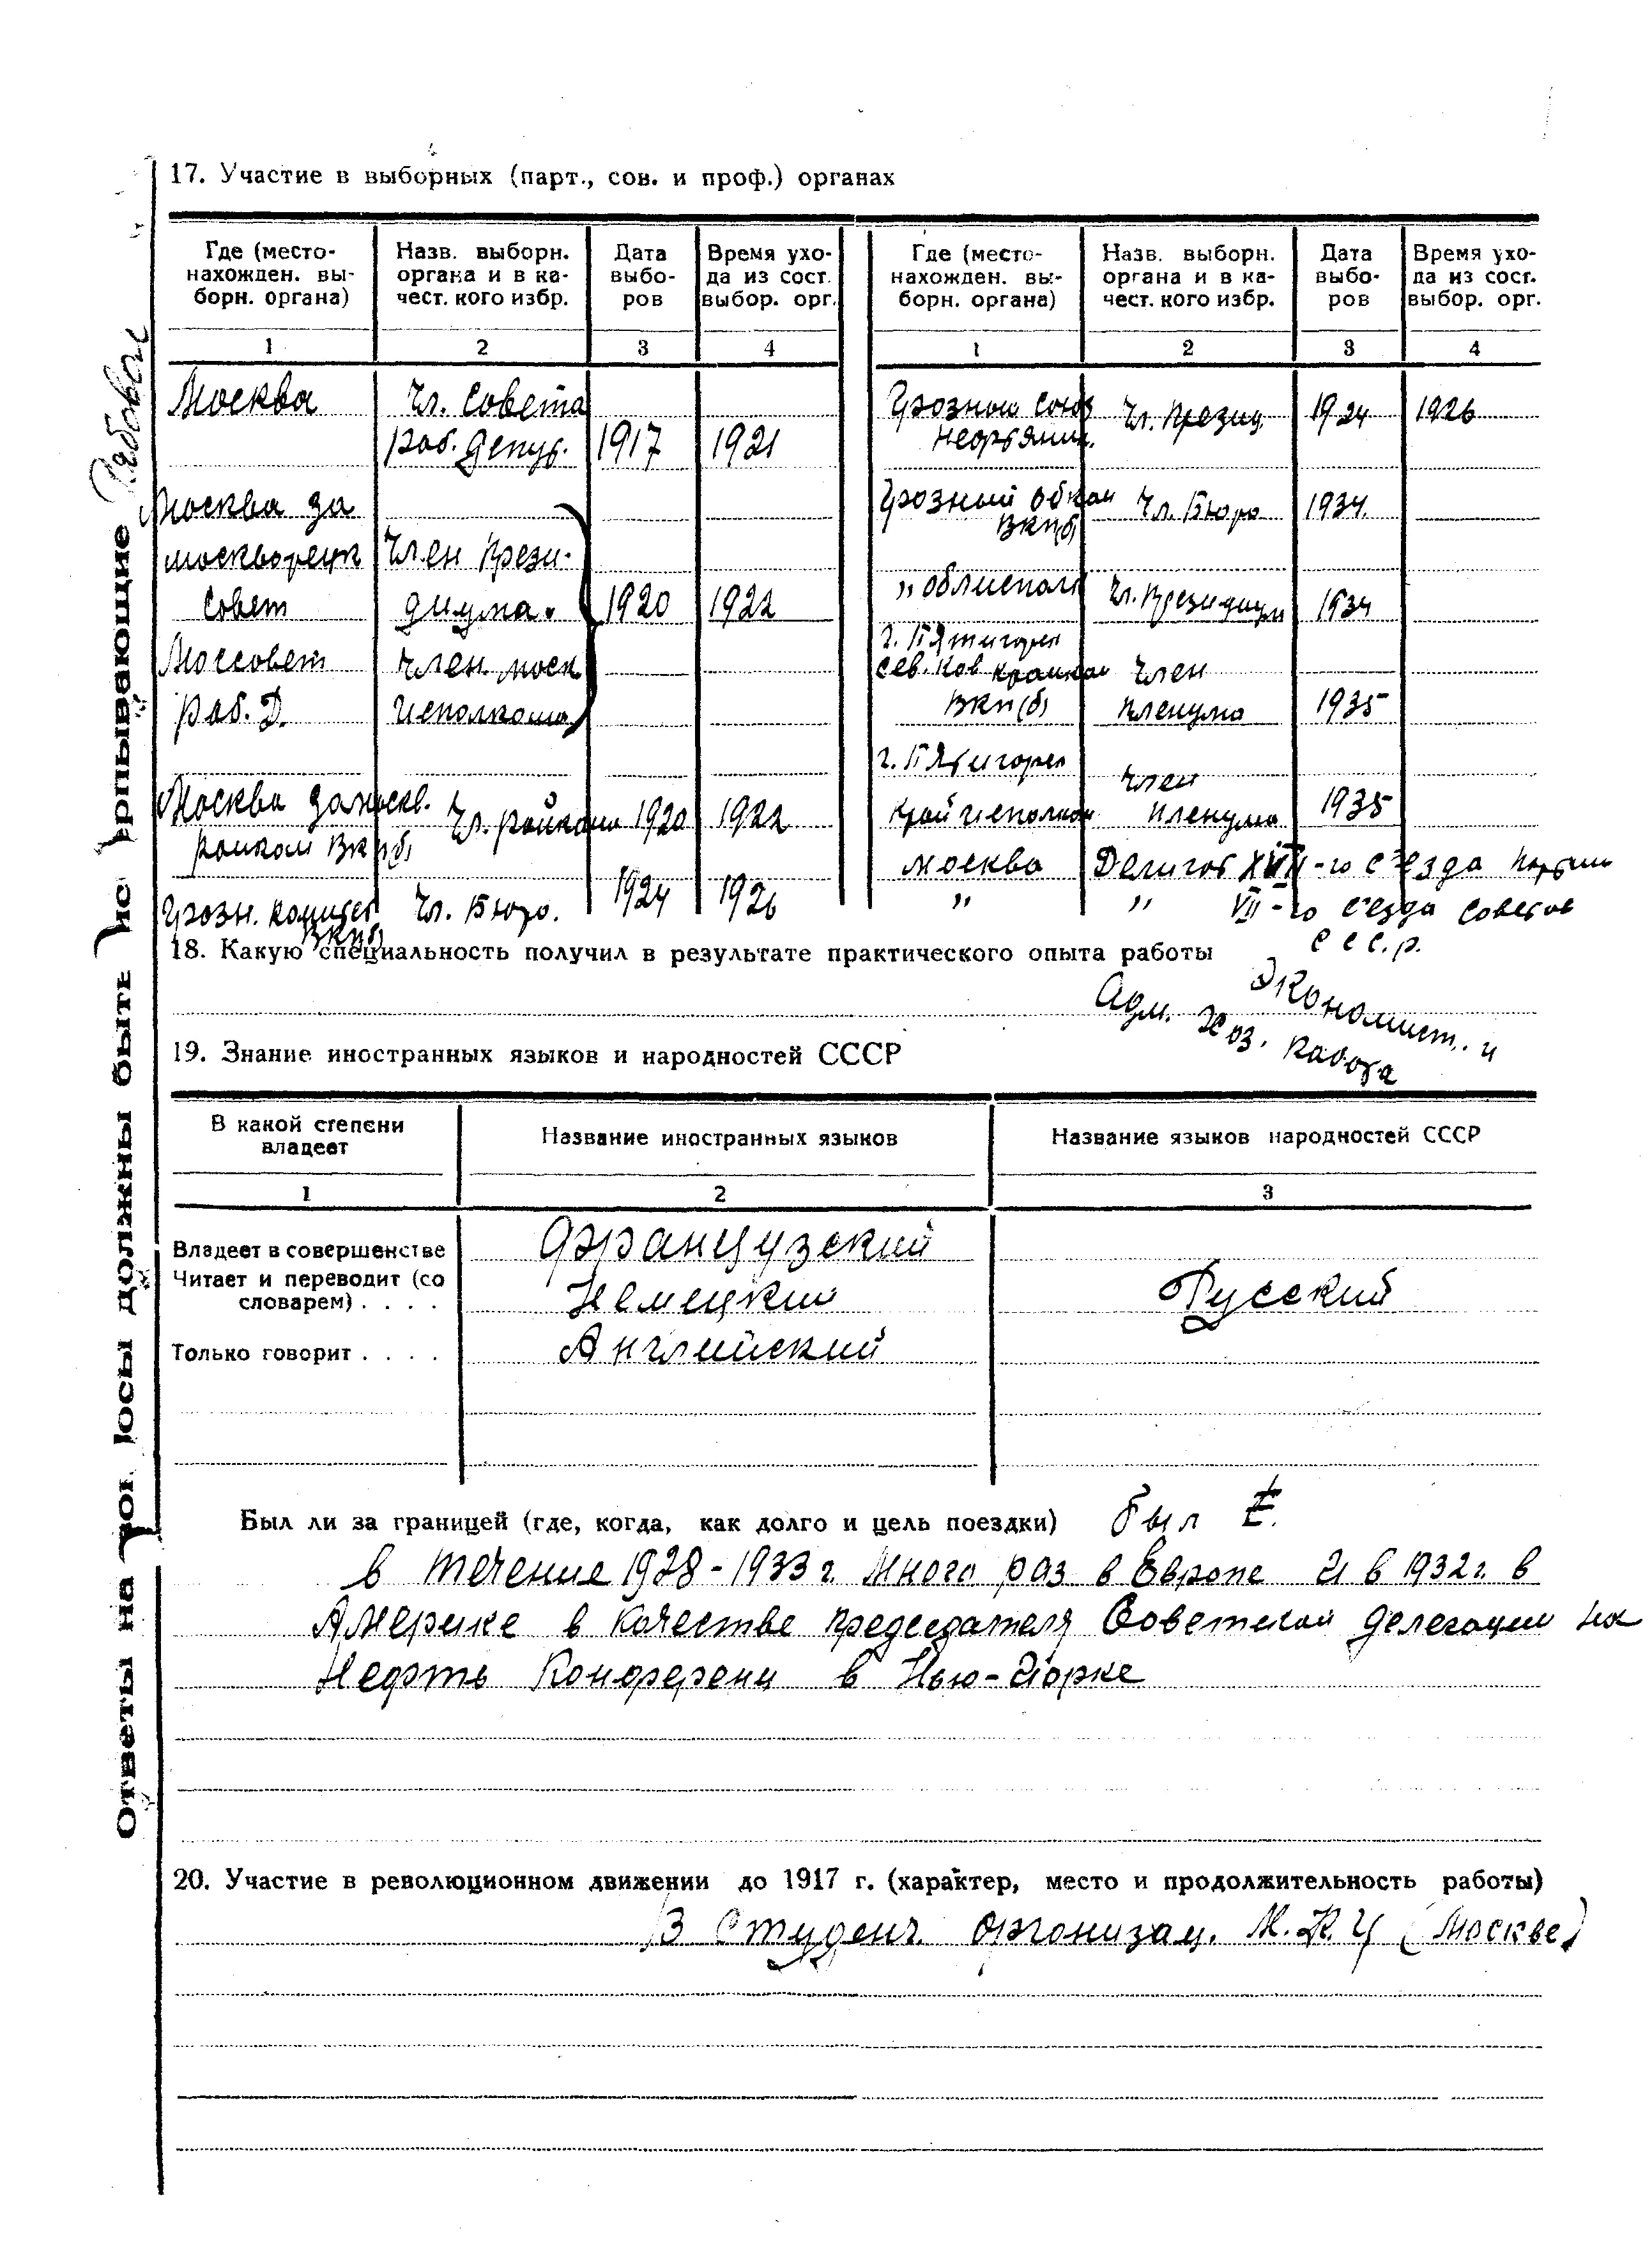 17. Участие в выборных (парт., сов. и проф.) органах
Где (место-нахожден. вы-борн. органа) Назв. выборн. органа и в ка-чест. кого избр. Дата выбо-ров Время ухо-да из сост. выбор. орг. Где (место-нахожден. вы-борн. органа) Назв. выборн. органа и в ка-чест. кого избр. Дата выбо-ров Время ухо-да из сост. выбор. орг.
1 2 3 4 1 2 3 4
Москва Чл. Совета
раб. депут. 1917 1921
Москва за
москворецк Член Прези-
Совет диума. 1920 1922
Моссовет Член моск
раб. Д. Исполкома
Москва замоскв. Чл. райкома 1920 1922
райком ВКП(б)
Грозн. комитет Чл. Бюро. 1924 1926
ВКП(б)
Грозный союз Чл. Презид. 1924 1926
нефтяник.
Грозный обком Чл. Бюро 1934
ВКП(б)
,, облисполк Чл. Президиум 1934
г. Пятигорск
Сев. Кав крайком Член
ВКП(б) пленума 1935
г. Пятигорск Член
Крайисполком пленума 1935
Москва Делигат XVII-го съезда партии
,, ,, VII-го съезда советов
С С С. р.
18. Какую специальность получил в результате практического опыта работы
Экономист. и
Адм. Хоз. работа
19. Знание иностранных языков и народностей СССР
В какой степени владеет Название иностранных языков Название языков народностей СССР
1 2 3
Владеет в совершенстве Французский
Читает и переводит (со
словарем) . . . . Немецкий Русский
Только говорит . . . . Английский
Был ли за границей (где, когда, как долго и цель поездки) был
в течение 1928-1933 г. Много раз в Европе и в 1932 г. в
Америке в качестве председателя Советской делегации на
Нефть Конференц в Нью-Йорке
20. Участие в революционном движении до 1917 г. (характер, место и продолжительность работы)
В Студенч. организац. (Москве)
Ответы на должны быть